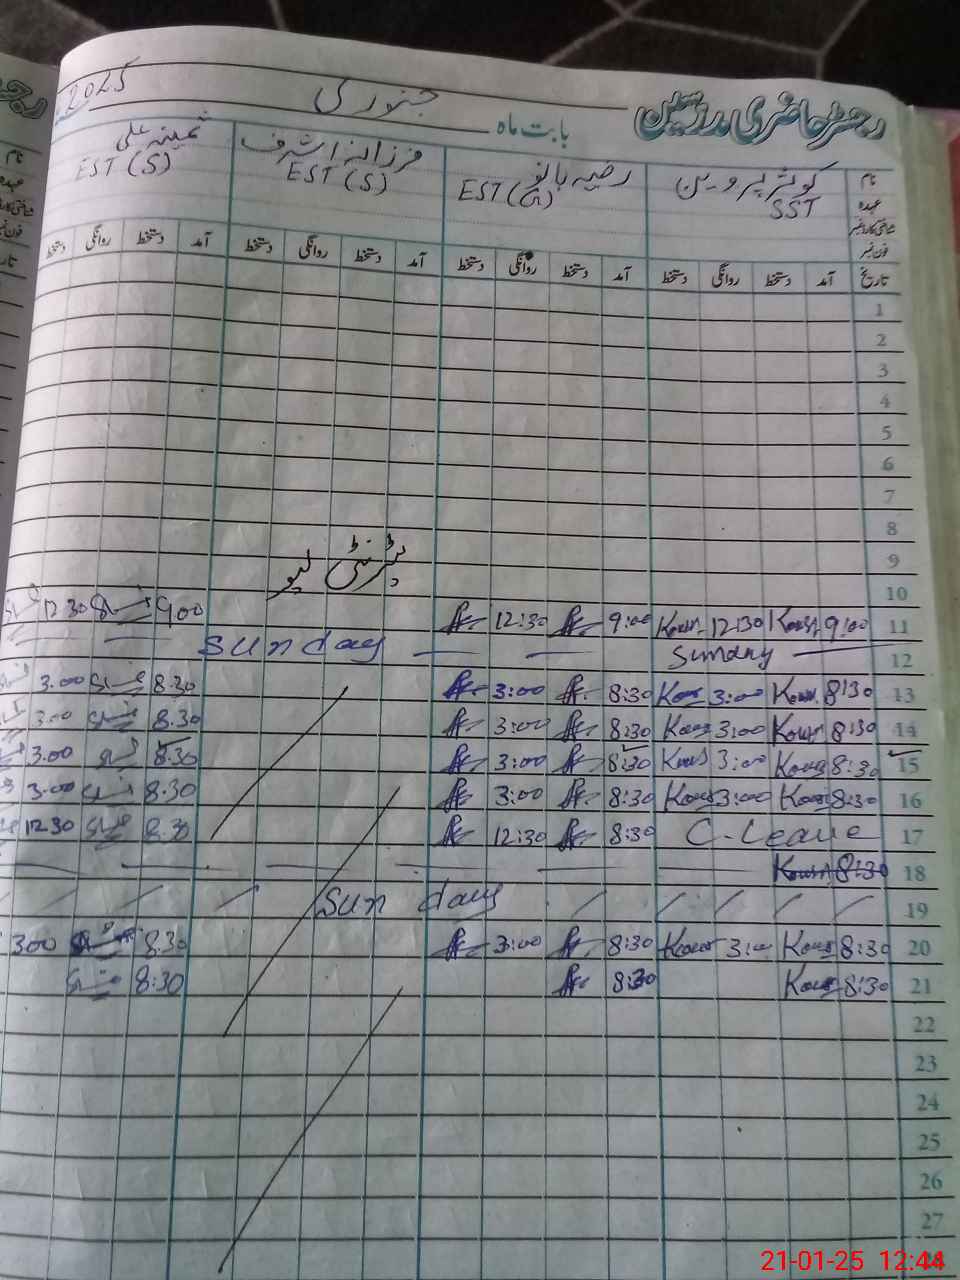 رجسٹر حاضری مدرسین بابت ماہ جنوری 2025
نام کوثر پروین رضیہ بانو فرزانہ اشرف ثمینہ علی
عہدہ SST EST (G) EST (S) EST (S)
شناختی کارڈ نمبر
فون نمبر
تاریخ آمد دستخط روانگی دستخط آمد دستخط روانگی دستخط آمد دستخط روانگی دستخط آمد دستخط روانگی دستخط
1
2
3
4
5
6
7
8
9
میٹرنٹی لیو
10
11 9:00 Kousr 12:30 Kousr 9:00 12:30 9:00 12:30
12 Sunday Sunday
13 8:30 Kousr 3:00 Kous 8:30 3:00 8:30 3:00
14 8:30 Kousr 3:00 Kous 8:30 3:00 8.30 3:00
15 8:30 Kousr 3:00 Kousr 8:30 3:00 8.30 3.00
16 8:30 Kousr 3:00 Kousr 8:30 3:00 8.30 3.00
17 C-Leave 8:30 12:30 8.30 12.30
18 8:30 Kousr
19 Sunday
20 8:30 Kousr 3:00 Kousr 8:30 3:00 8.30 300
21 8:30 Kousr 8:30 8:30
22
23
24
25
26
27
28
21-01-25 12:44